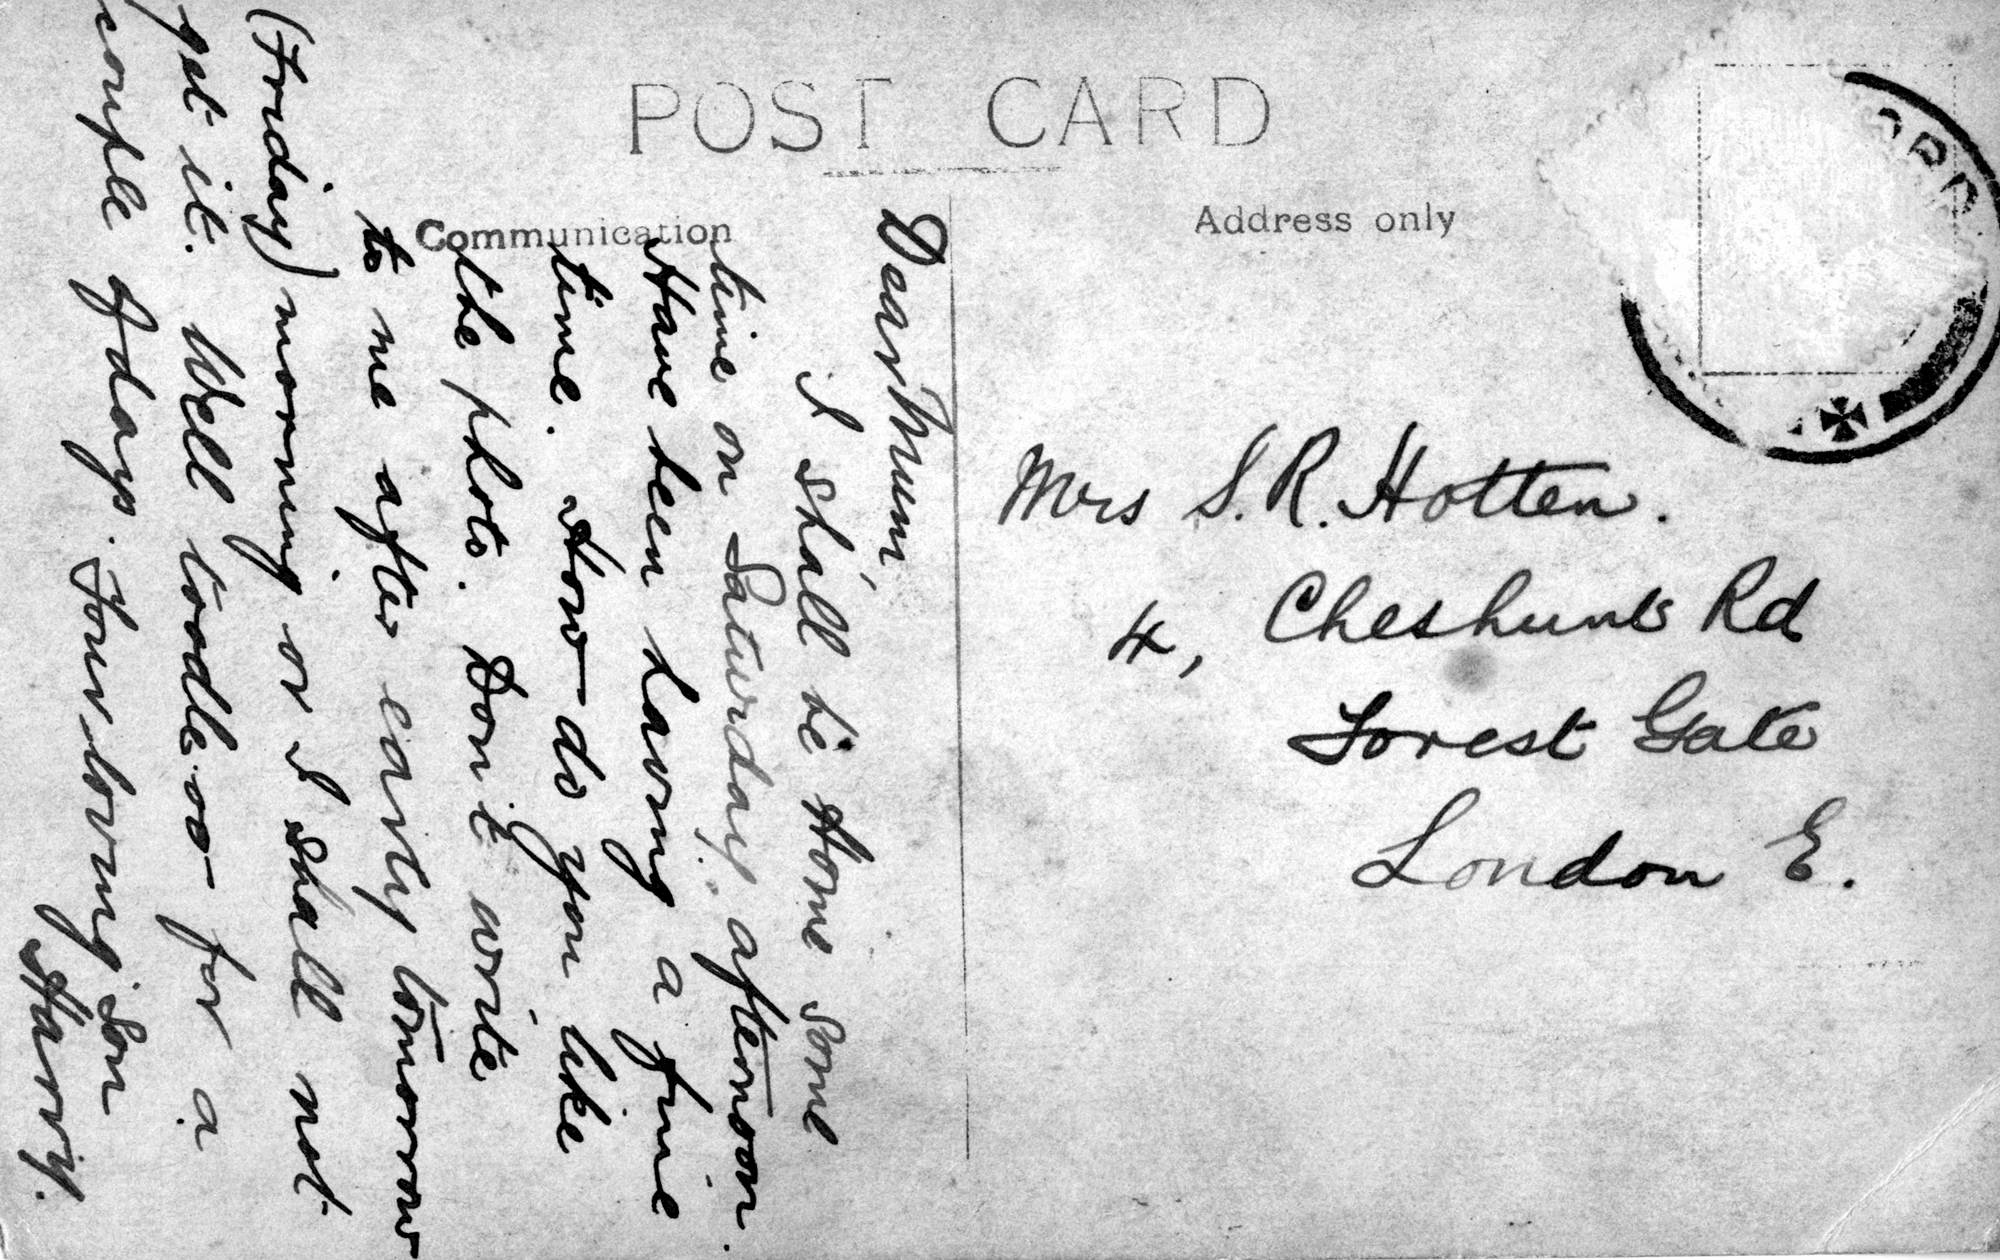 POST CARD
Communication
Address only
Dear Mum,
I shall be Home some
time on Saturday, afternoon.
Have been having a fine
time. How do you like
the photo. Don't write
to me after early tomorrow
(Friday) morning or I shall not
get it. Well toodle-oo for a
couple of days. Your loving son
Harry.
Mrs S. R. Hotten.
4, Cheshunt Rd
Forest Gate
London E.